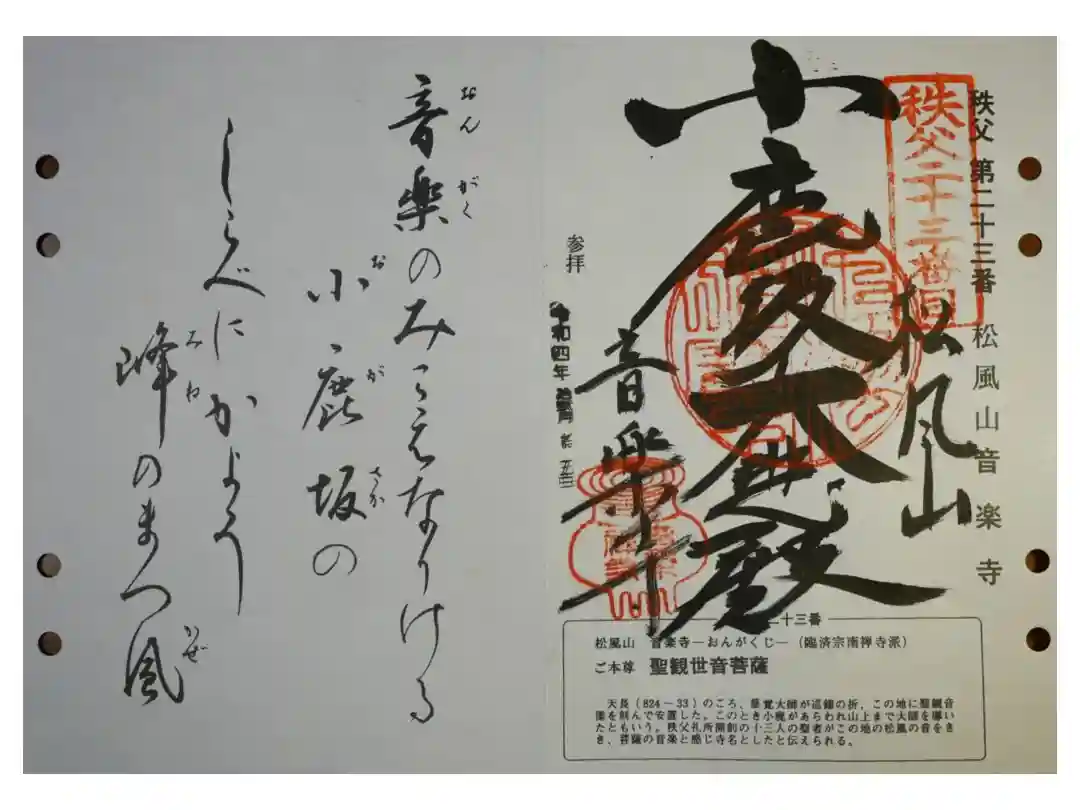 秩父 第二十三番 松風山音楽寺
秩父二十三番
松風山
小鹿坂大悲殿
音楽寺
参拝
令和四年
二十三番
松風山 音楽寺―おんがくじ―(臨済宗南禅寺派)
ご本尊 聖観世音菩薩
天長(824～33)のころ、慈覚大師が巡錫の折、この地に聖観音
像を刻んで安置した。このとき小鹿があらわれ山上まで大師を導い
たともいう。秩父札所開創の十三人の聖者がこの地の松風の音をき
き、菩薩の音楽と感じ寺名としたと伝えられる。
音楽のみこゑなりける
おんがく
小鹿坂の
おがさか
しらべにかよふ
峰のまつ風
みね かぜ